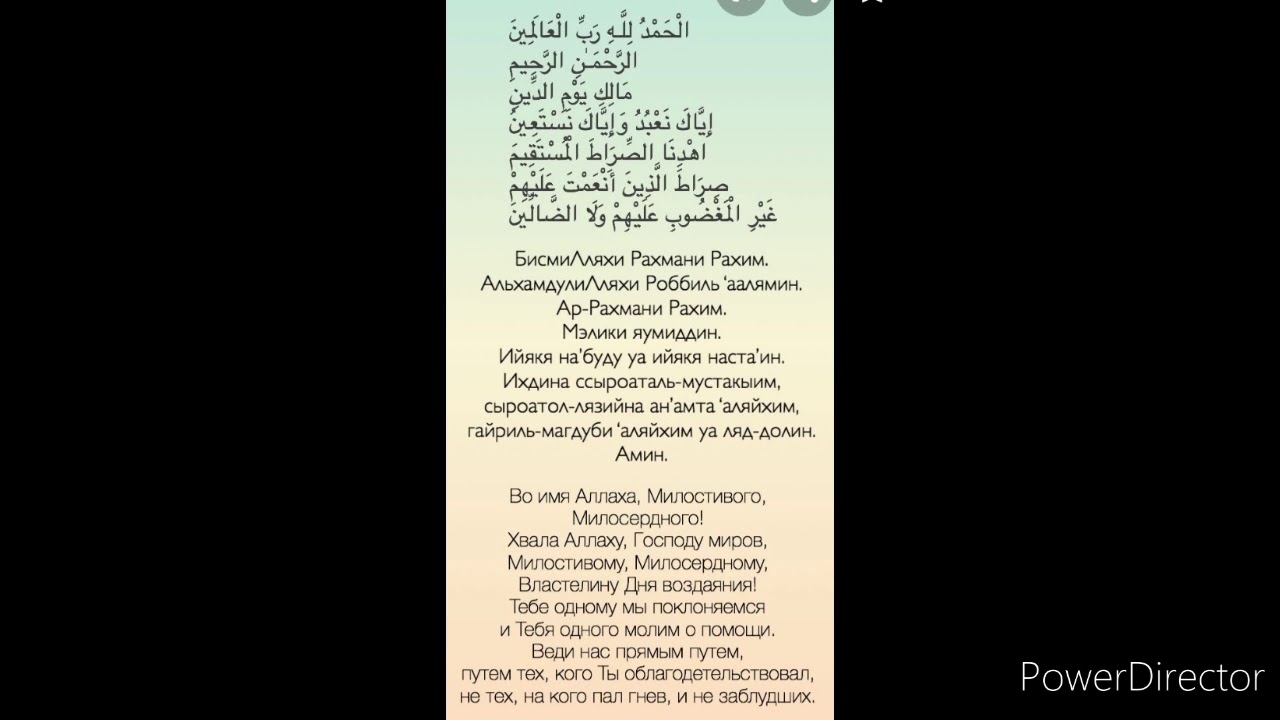 الْحَمْدُ لِلَّـهِ رَبِّ الْعَالَمِينَ
الرَّحْمَـٰنِ الرَّحِيمِ
مَالِكِ يَوْمِ الدِّينِ
إِيَّاكَ نَعْبُدُ وَإِيَّاكَ نَسْتَعِينُ
اهْدِنَا الصِّرَاطَ الْمُسْتَقِيمَ
صِرَاطَ الَّذِينَ أَنْعَمْتَ عَلَيْهِمْ
غَيْرِ الْمَغْضُوبِ عَلَيْهِمْ وَلَا الضَّالِّينَ
БисмиЛляхи Рахмани Рахим.
АльхамдулиЛляхи Роббиль ‘аалямин.
Ар-Рахмани Рахим.
Мэлики яумиддин.
Ийякя на’буду уа ийякя наста’ин.
Ихдина ссыроаталь-мустакыим,
сыроатол-лязийна ан’амта ‘аляйхим,
гайриль-магдуби ‘аляйхим уа ляд-долин.
Амин.
Во имя Аллаха, Милостивого,
Милосердного!
Хвала Аллаху, Господу миров,
Милостивому, Милосердному,
Властелину Дня воздаяния!
Тебе одному мы поклоняемся
и Тебя одного молим о помощи.
Веди нас прямым путем,
путем тех, кого Ты облагодетельствовал,
не тех, на кого пал гнев, и не заблудших.
PowerDirector